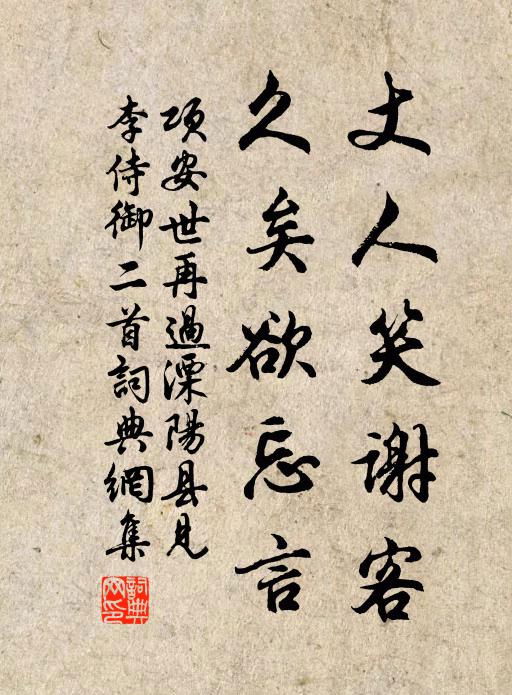 丈人笑謝客
久矣欲忘言
項安世再過溧陽县見
李侍御二首詞典網集
詞典
网印